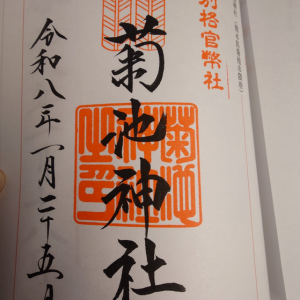 別格官幣社
菊池神社
菊池神社之印
令和八年一月二十五日